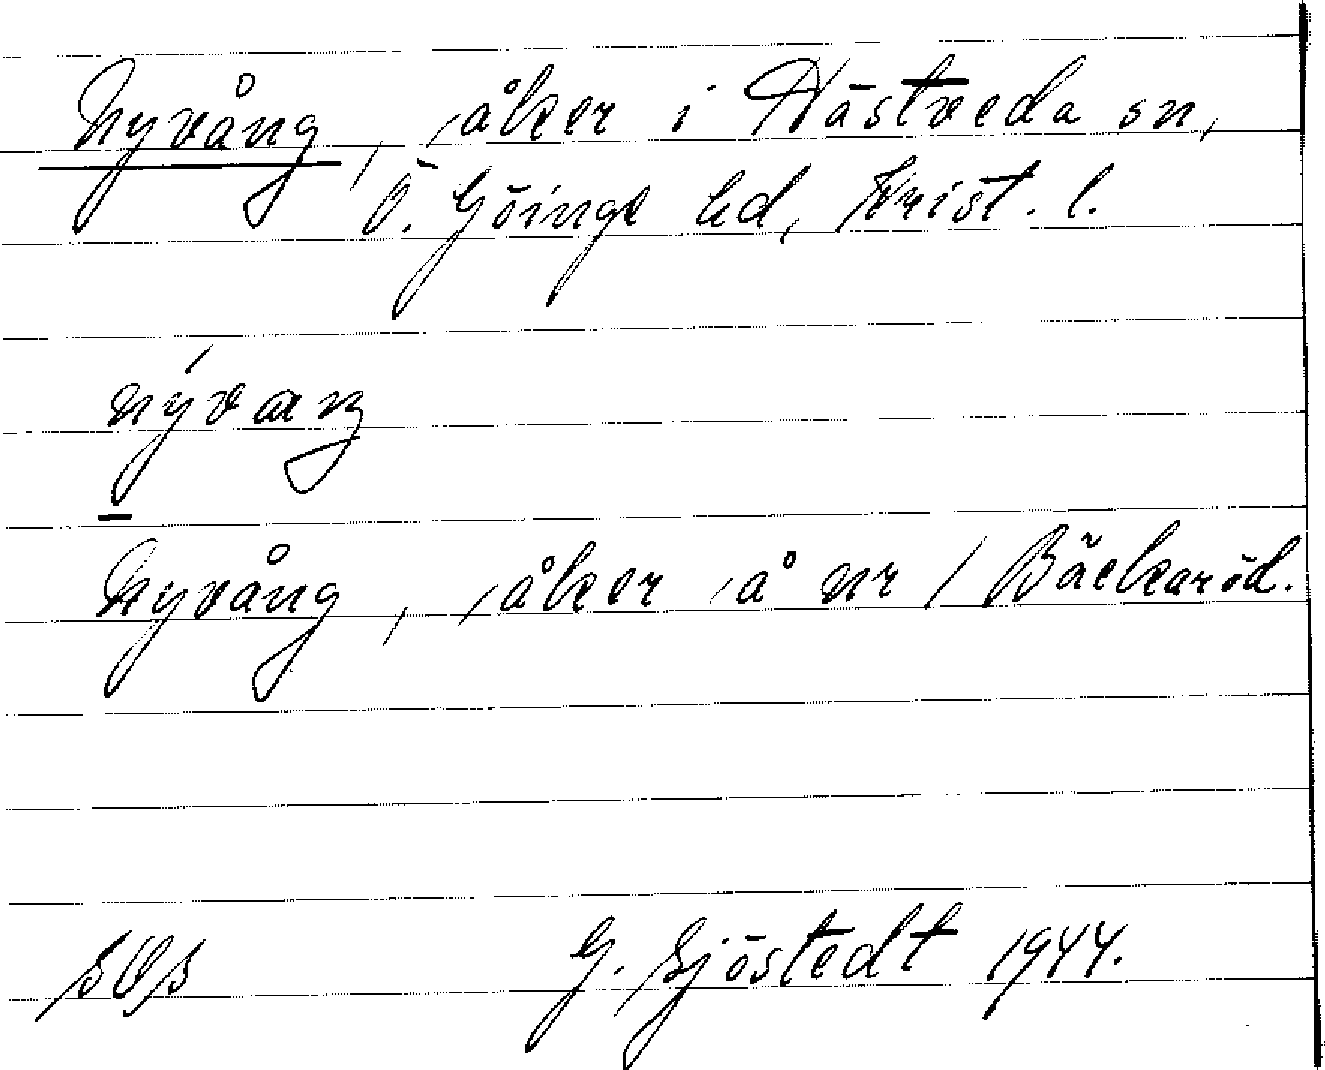 Nyvång, åker i Hästveda sn,
Ö. Göinge hd, Krist. l.
nývaŋ
Nyvång, åker å nr 1 Bäckaröd.
SOS G. Sjöstedt 1944.